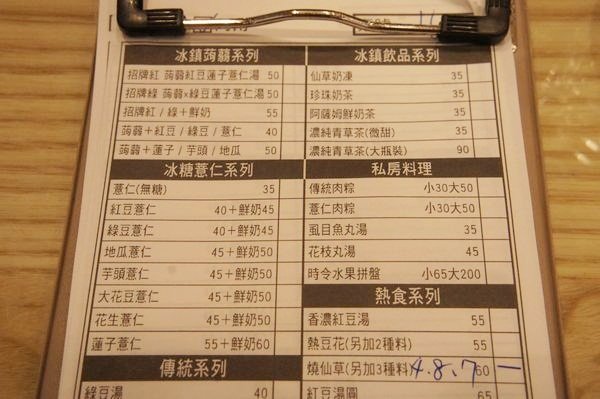 冰鎮蒟蒻系列
招牌紅 蒟蒻紅豆蓮子薏仁湯 50
招牌綠 蒟蒻×綠豆蓮子薏仁湯 50
招牌紅/綠+鮮奶 55
蒟蒻+紅豆/綠豆/薏仁 40
蒟蒻+蓮子/芋頭/地瓜 50
冰糖薏仁系列
薏仁(無糖) 35
紅豆薏仁 40+鮮奶45
綠豆薏仁 40+鮮奶45
地瓜薏仁 45+鮮奶50
芋頭薏仁 45+鮮奶50
大花豆薏仁 45+鮮奶50
花生薏仁 45+鮮奶50
蓮子薏仁 55+鮮奶60
傳統系列
綠豆湯 40
冰鎮飲品系列
仙草奶凍 35
珍珠奶茶 35
阿薩姆鮮奶茶 35
濃純青草茶(微甜) 35
濃純青草茶(大瓶裝) 90
私房料理
傳統肉粽 小30大50
薏仁肉粽 小30大50
虱目魚丸湯 35
花枝丸湯 45
時令水果拼盤 小65大200
熱食系列
香濃紅豆湯 55
熱豆花(另加2種料) 55
燒仙草(另加3種料) 4.8.7 60 一
紅豆湯圓 65